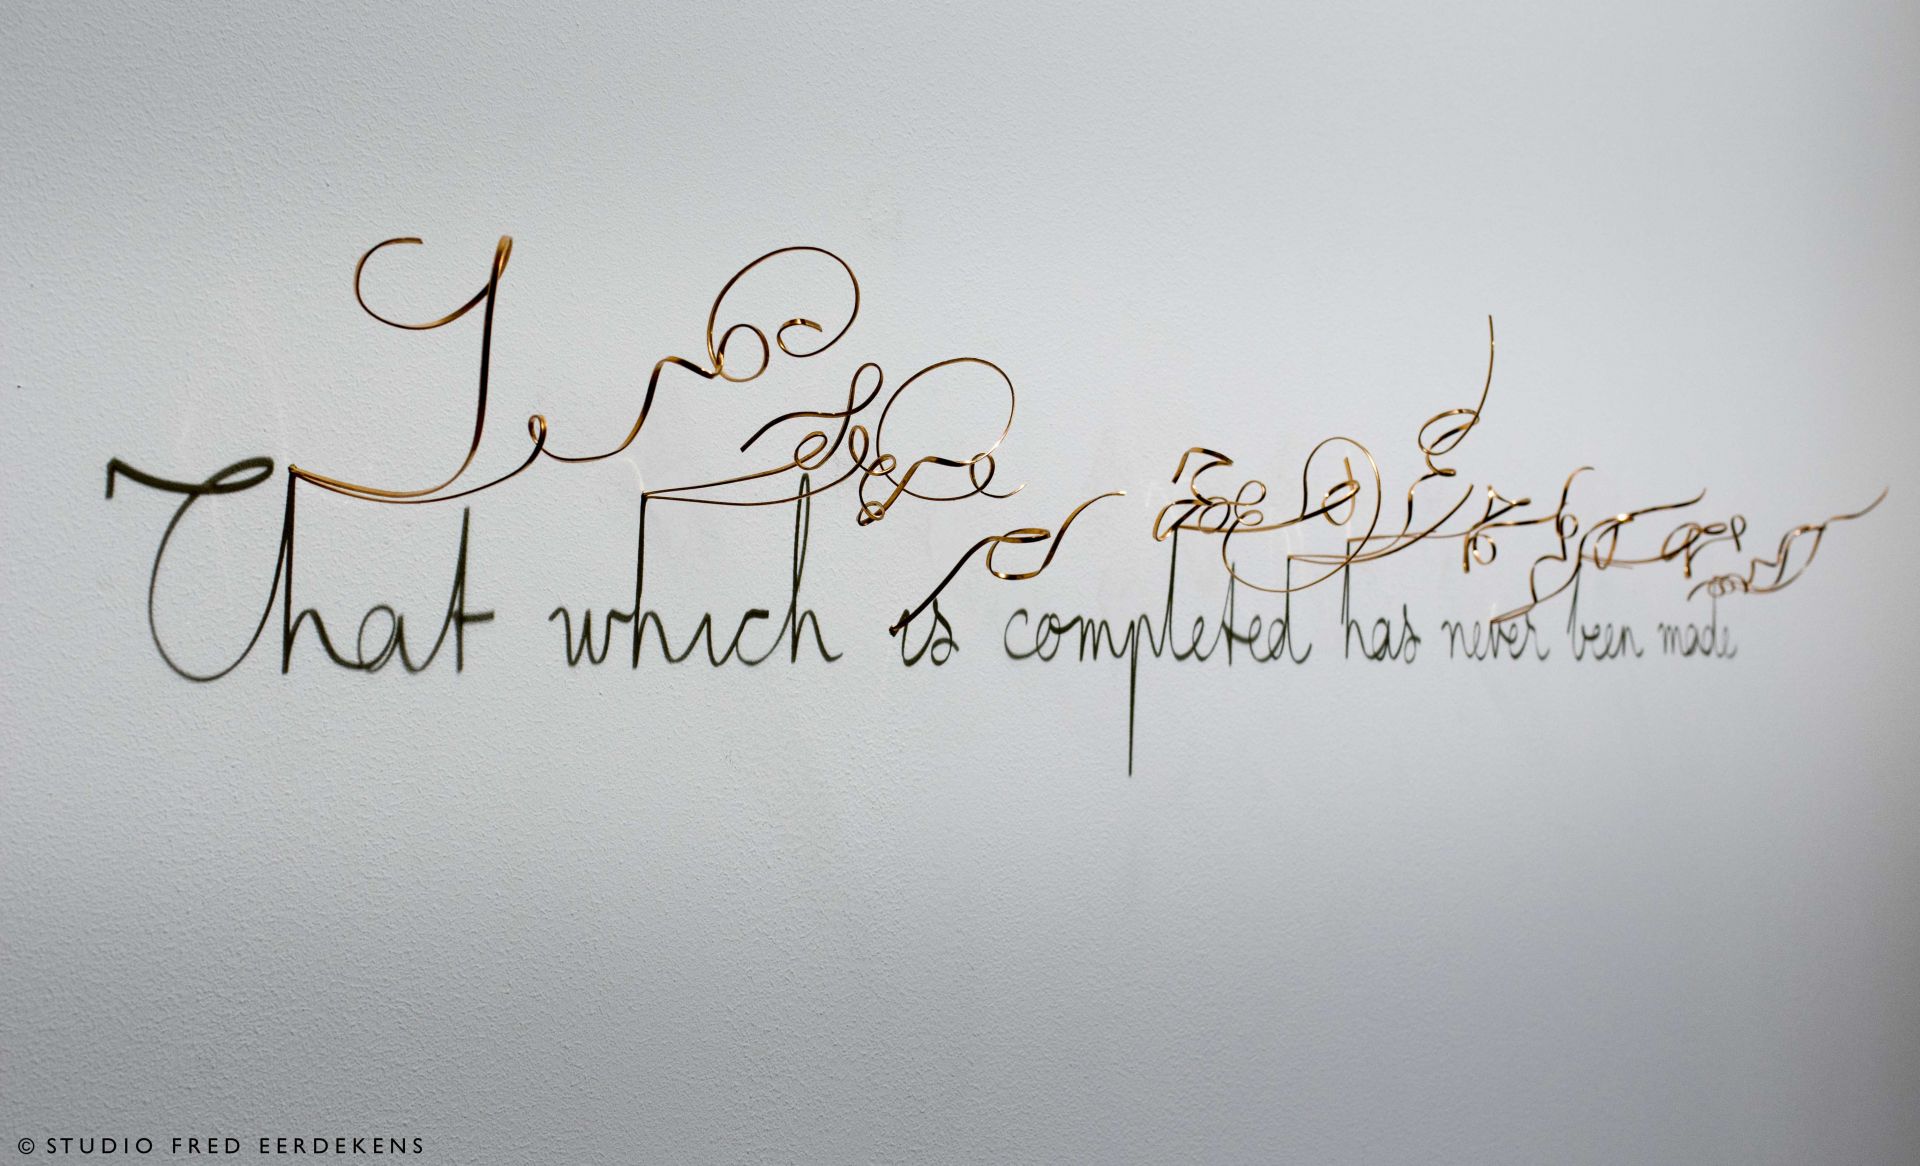 That which is completed has never been made
© STUDIO FRED EERDEKENS